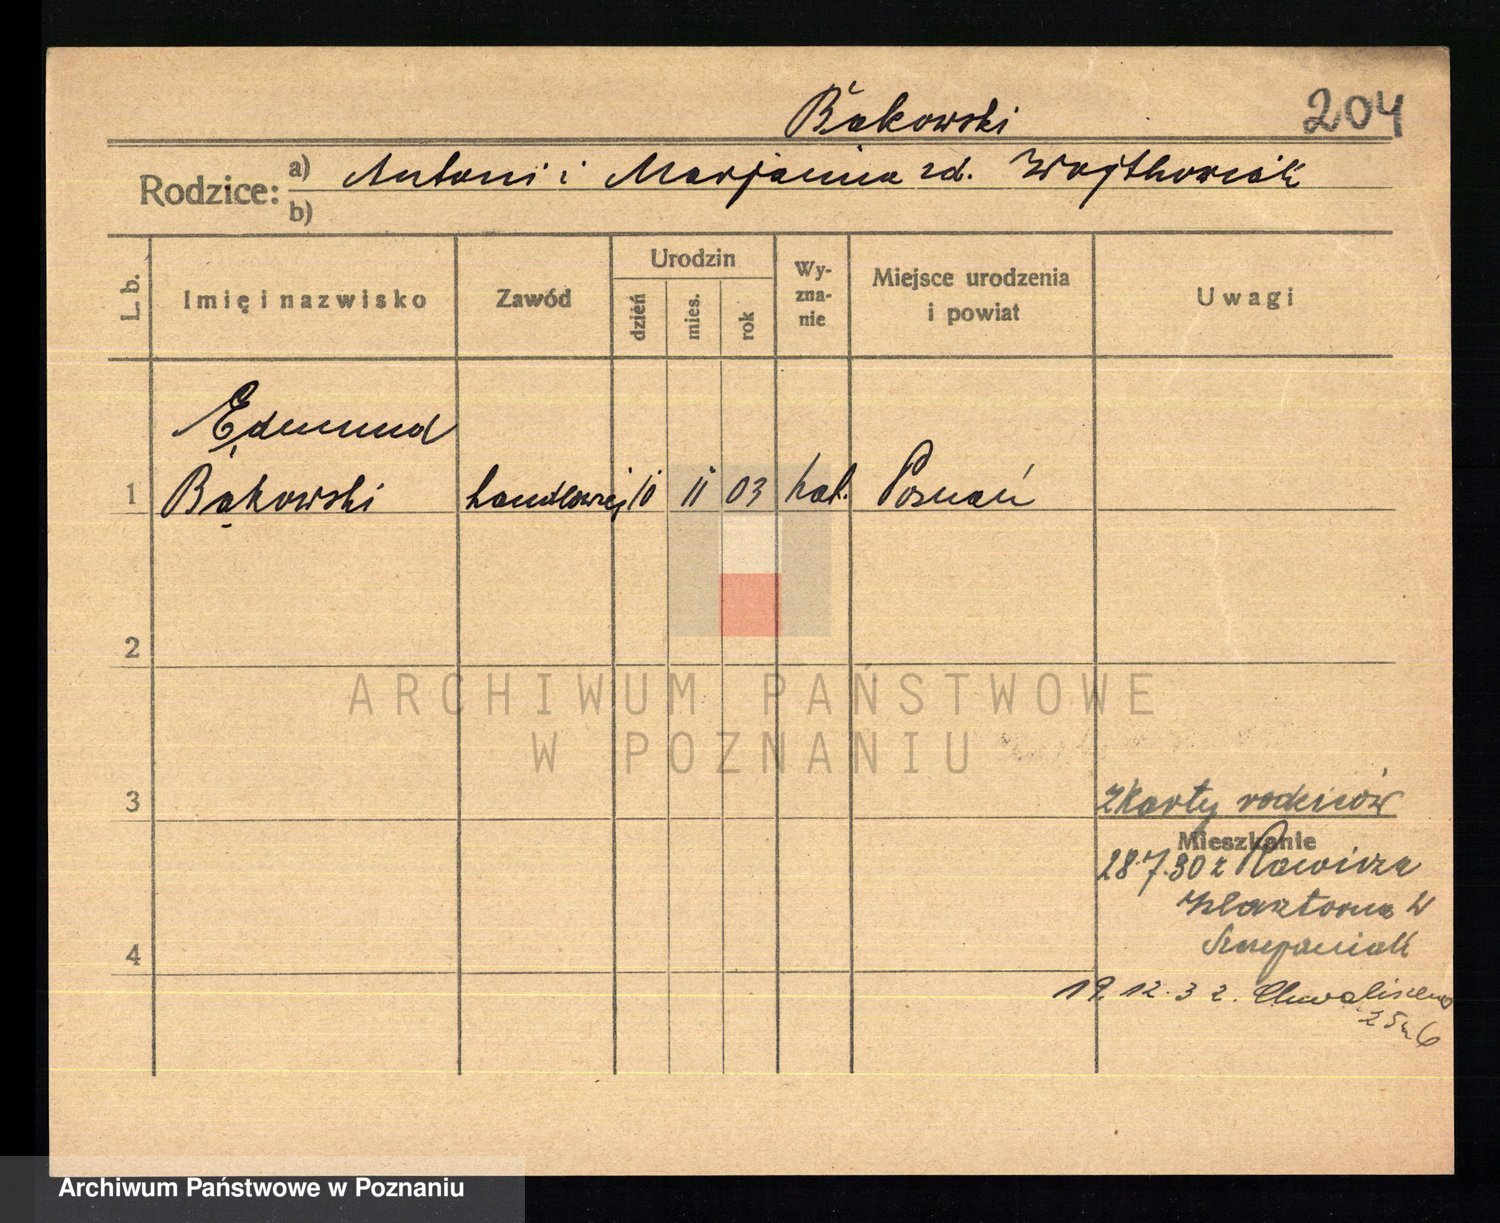 Bąkowski
204
Rodzice: a) Antoni i Marjanna zd. Wojtkowiak
b)
L. b.
Imię i nazwisko
Zawód
Urodzin
dzień
mies.
rok
Wy-
zna-
nie
Miejsce urodzenia
i powiat
Uwagi
Edmund
1 Bąkowski handlowiej 11 03 kat. Poznań
2
ARCHIWUM PAŃSTWOWE
W POZNANIU
3
z karty rodziców
Mieszkanie
28.7.30 z Rawicza
Klasztorna
Szczepaniak
4
19.12.32. Chwaliszewo
25 m 6
Archiwum Państwowe w Poznaniu